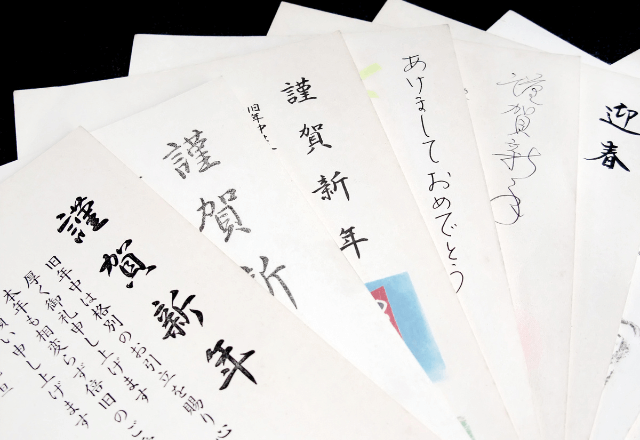 謹賀新年
旧年中は格別のお引立を賜り心
厚く御礼申し上げます
本年も相変らず倍旧のご
願い申し上げます
謹賀新
謹賀新年
旧年中
あけましておめでとう
謹賀新年
迎春